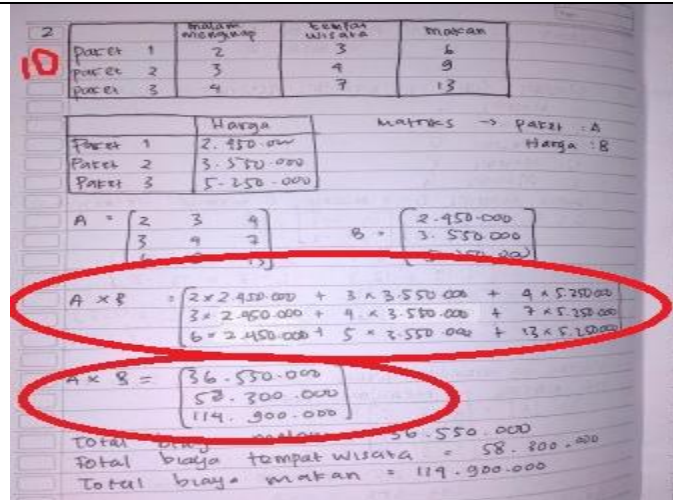 2
10
malam menginap tempat wisata makan
Paket 1 2 3 6
Paket 2 3 4 9
Paket 3 4 7 13
Harga
Paket 1 2.450.000
Paket 2 3.550.000
Paket 3 5.250.000
Matriks → Paket : A
Harga : B
A = [2 3 4
3 4 7
13]
B = [2.450.000
3.550.000
A × B = [2 × 2.450.000 + 3 × 3.550.000 + 4 × 5.250.000
3 × 2.450.000 + 4 × 3.550.000 + 7 × 5.250.000
6 × 2.450.000 + 5 × 3.550.000 + 13 × 5.250.000
A × B = [36.550.000
58.300.000
114.900.000]
Total 36.550.000
Total biaya tempat wisata = 58.300.000
Total biaya makan = 114.900.000